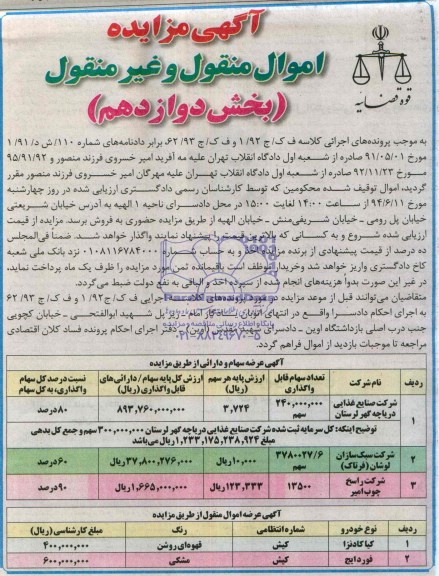 آگهی مزایده
اموال منقول و غیر منقول
(بخش دوازدهم)
قوه قضائیه
به موجب پرونده‌های اجرائی کلاسه ف ک/ ج ۱/۹۲ و ف ک/ ج ۶۲/۹۳، برابر دادنامه‌های شماره ۱۱۰/ش د/۹۱/۱
مورخ ۹۱/۰۵/۰۱ صادره از شعبه اول دادگاه انقلاب تهران علیه مه آفرید امیر خسروی فرزند منصور و ۹۵/۹۱/۹۲
مورخ ۹۲/۱۱/۲۳ صادره از شعبه اول دادگاه انقلاب تهران علیه مهرگان امیر خسروی فرزند منصور مقرر
گردید، اموال توقیف شده محکومین که توسط کارشناسان رسمی دادگستری ارزیابی شده در روز چهارشنبه
مورخ ۹۴/۶/۱۱ از ساعت ۱۴:۰۰ لغایت ۱۵:۰۰ در محل دادسرای ناحیه ۱ الهیه به آدرس خیابان شریعتی
خیابان پل رومی - خیابان شریفی‌منش - خیابان الهیه از طریق مزایده حضوری به فروش برسد. مزایده از قیمت
ارزیابی شده شروع و به کسانی که بالاترین قیمت را پیشنهاد نمایند واگذار خواهد شد. ضمناً فی‌المجلس
درصد از قیمت پیشنهادی از برنده مزایده اخذ و به حساب شماره ۰۱۰۸۱۱۶۷۸۴۰۰۰ نزد بانک ملی شعبه
کاخ دادگستری واریز خواهد شد و خریدار موظف است باقیمانده ثمن مورد مزایده را ظرف یک ماه پرداخت نماید،
در غیر این صورت بدواً هزینه‌های انجام شده از سپرده اخذ و الباقی به نفع دولت ضبط می‌گردد.
متقاضیان می‌توانند قبل از موعد مزایده در مورد پرونده‌های کلاسه اجرایی ف ک/ج ۱/۹۲ و ف ک/ ج ۶۲/۹۳
به اجرای احکام دادسرا واقع در انتهای اتوبان شهید ابوالفتحی - خیابان کچویی
جنب درب اصلی بازداشتگاه اوین - دادسرای شهید مقدس (اوین) - دفتر اجرای احکام پرونده فساد کلان اقتصادی
مراجعه تا موجبات بازدید از اموال فراهم گردد.
پایگاه اطلاع رسانی مناقصه و مزایده
۰۲۱-۸۸۳۴۹۶۷۰-۵
آگهی عرضه سهام و دارائی از طریق مزایده
ردیف نام شرکت تعداد سهام قابل واگذاری ارزش پایه هر سهم (ریال) ارزش کل پایه سهام / دارائی‌های قابل واگذاری (ریال) نسبت درصد کل سهام واگذاری، به کل سهام
۱ شرکت صنایع غذایی دریاچه گهر لرستان ۲۴۰,۰۰۰,۰۰۰ سهم ۳,۷۲۴ ۸۹۳,۷۶۰,۰۰۰,۰۰۰ ۸۰ درصد
توضیح اینکه: کل سرمایه ثبت شده شرکت صنایع غذایی دریاچه گهر لرستان ۳۰۰,۰۰۰,۰۰۰ سهم و جمع کل بدهی
مبلغ ۱,۲۳۳,۱۷۵,۲۳۸,۹۲۴ ریال می‌باشد
۲ شرکت سبک‌سازان لوشان (فرناک) ۳۷۸۰۰۲۷/۶ سهم ۱۰,۰۰۰ ریال ۳۷,۸۰۰,۲۷۶,۰۰۰ ریال ۶۰ درصد
۳ شرکت راسخ چوب امیر ۱۳۵۰۰ ۱۲۳,۳۳۳ ریال ۱,۶۶۵,۰۰۰,۰۰۰ ریال ۹۰ درصد
آگهی عرضه اموال منقول از طریق مزایده
ردیف نوع خودرو شماره انتظامی رنگ مبلغ کارشناسی (ریال)
۱ کیا کادنزا کیش قهوه‌ای روشن ۴۰۰,۰۰۰,۰۰۰
۲ فورد ایج کیش مشکی ۶۰۰,۰۰۰,۰۰۰